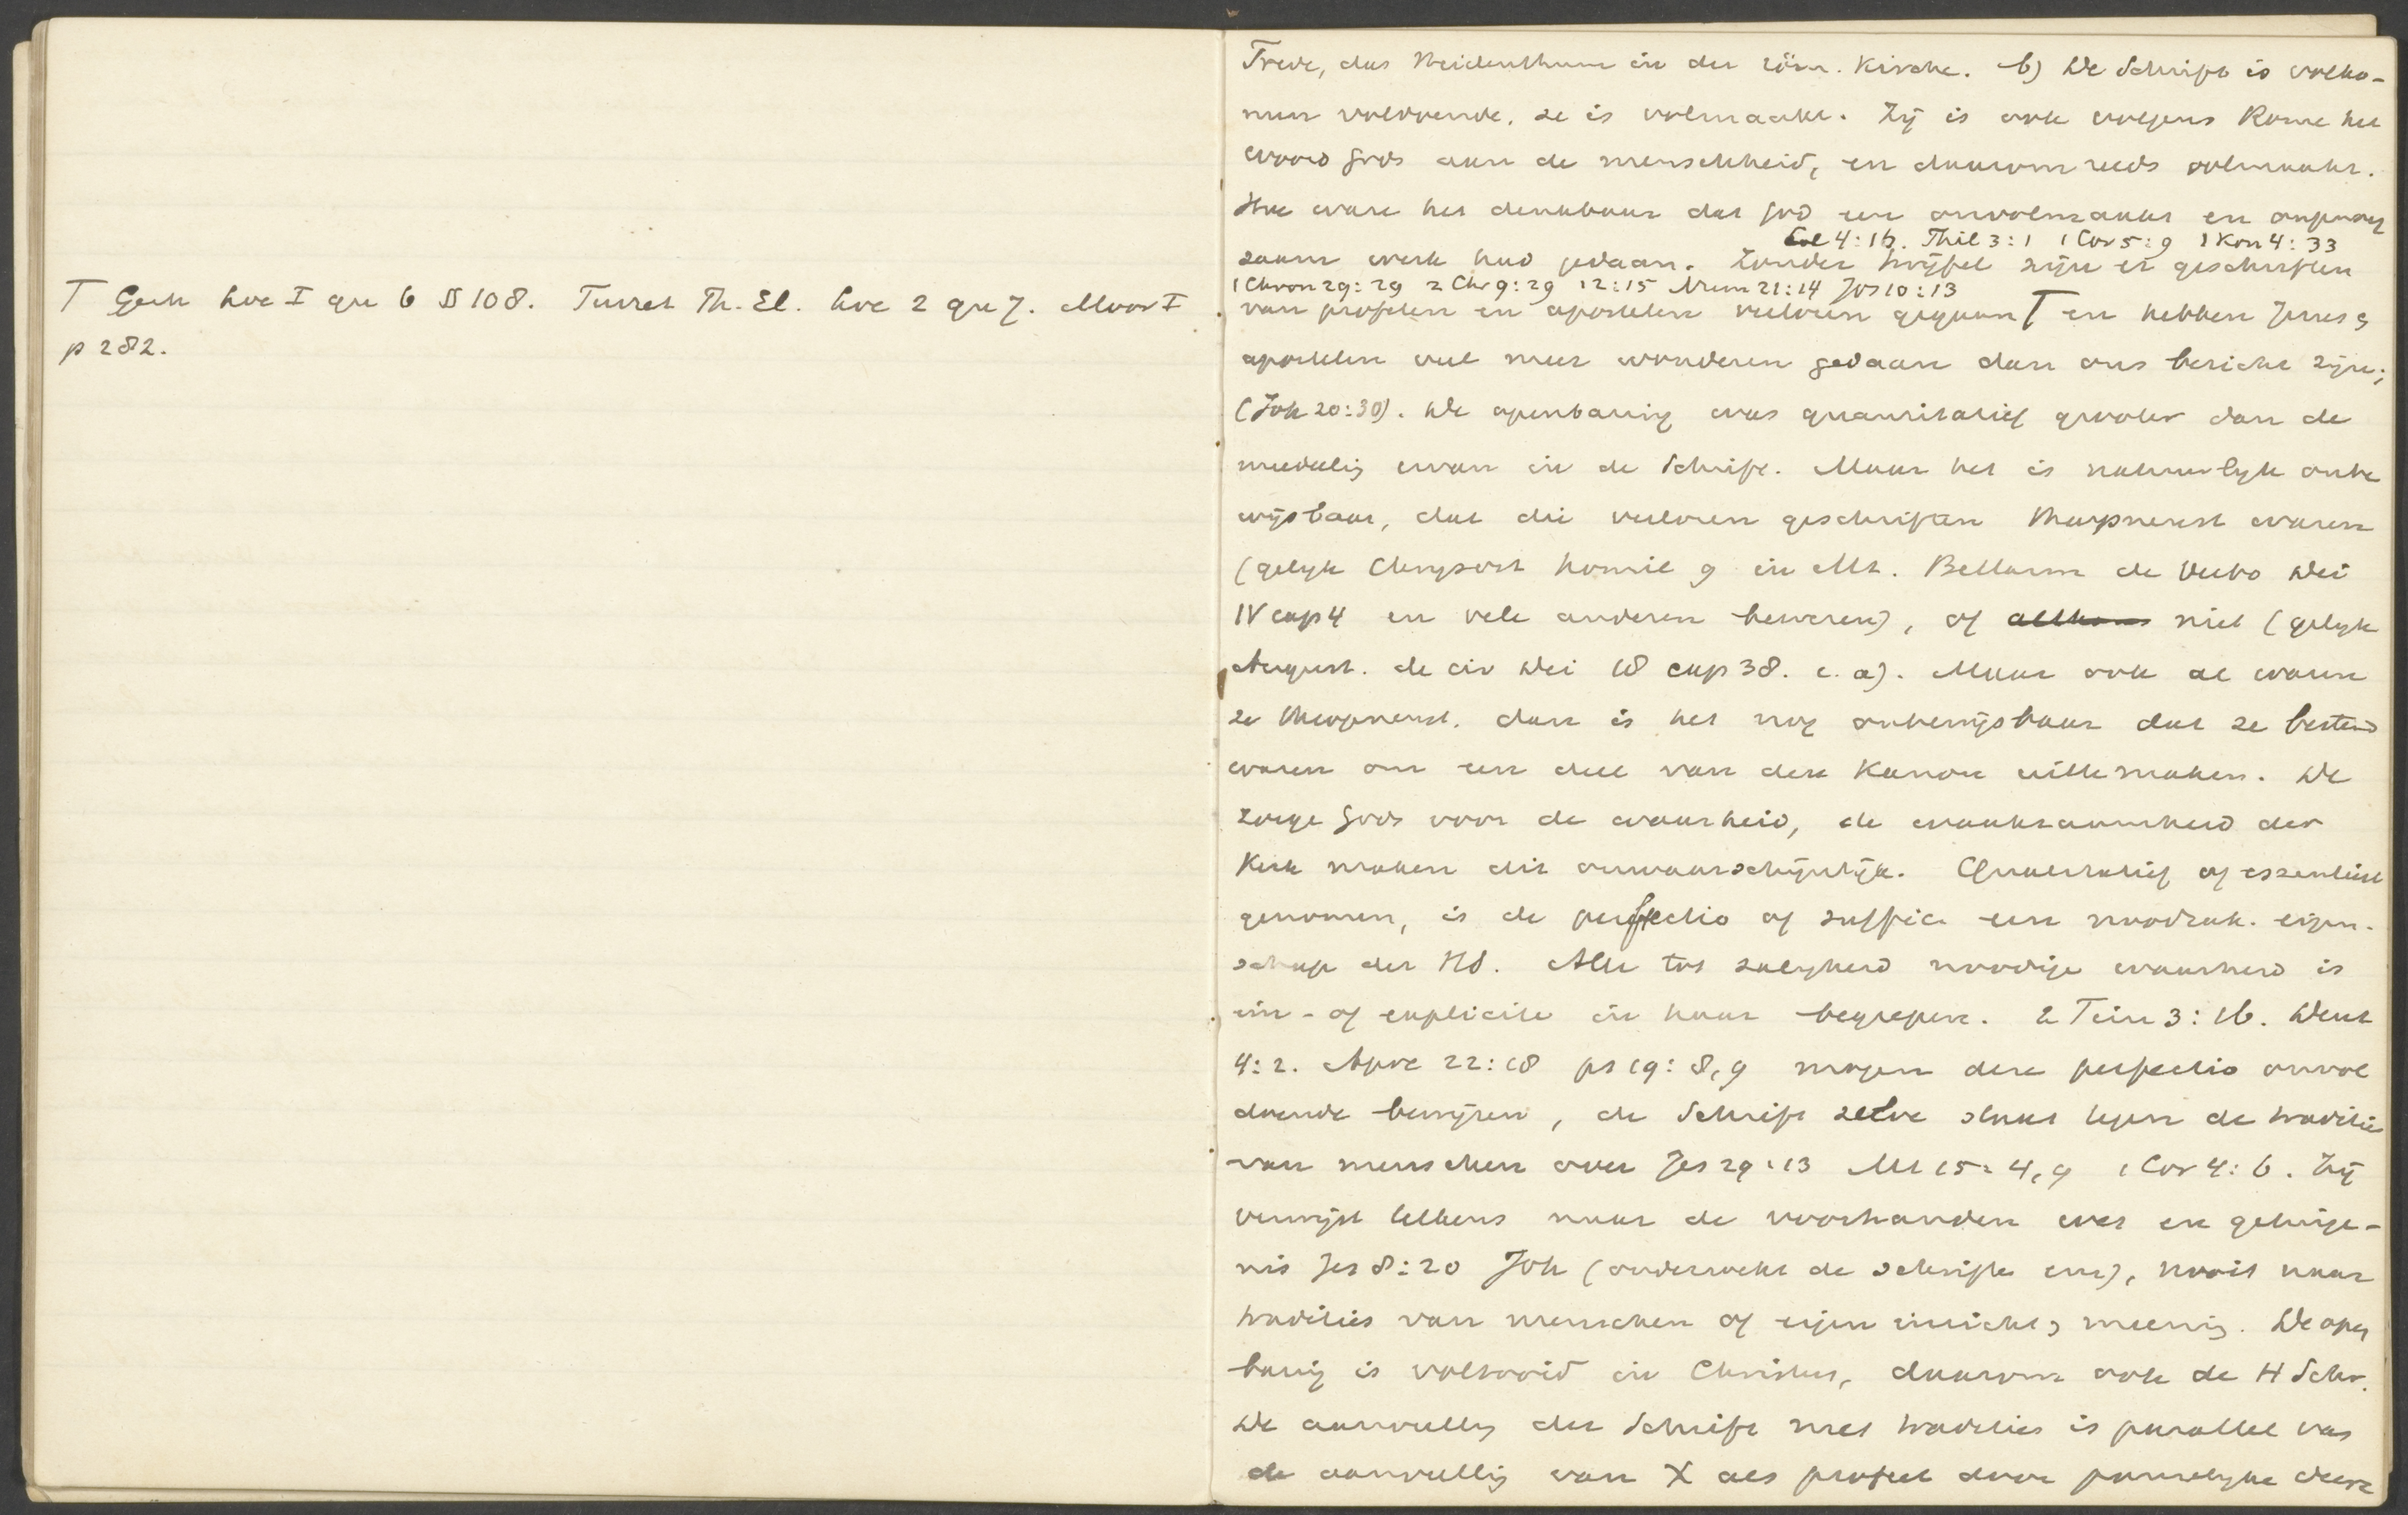 T Gerh loc I qu 6 § 108. Turret Th. El. loc 2 qu 7. Moor I
p 282.
Trede, das Heidenthum in der röm. Kirche. b) De Schrift is volko-
men voldoende, ze is volmaakt. Zij is ook volgens Rome het
woord Gods aan de menschheid, en daarom reeds volmaakt.
Hoe ware het denkbaar dat God een onvolmaakt en ongenoeg
Col 4:16. Phil 3:1 1 Cor 5:9 1 Kon 4:33
zaam werk had gedaan. Zonder twijfel zijn er geschriften
1 Chron 29:29 2 Chr 9:29 12:15 Num 21:14 Jos 10:13
van profeten en apostelen verloren gegaan T en hebben Jezus &
apostelen veel meer wonderen gedaan dan ons bericht zijn;
(Joh 20:30). De openbaring was quantitatief grooter dan de
meedeelig ervan in de Schrift. Maar het is natuurlyk onbe
wijsbaar, dat die verloren geschriften theopneust waren
(gelyk Chrysost homil 9 in Mt. Bellarm de Verbo Dei
IV cap 4 en vele anderen beweren), of niet (gelyk
August. de civ Dei 18 cap 38. e. a). Maar ook al waren
ze theopneust, dan is het nog onbewijsbaar dat ze bestemd
waren om een deel van den Kanon uit te maken. De
zorge Gods voor de waarheid, de waakzaamheid der
Kerk maken dit onwaarschijnlijk. Qualitatief of essentieel
genomen, is de perfectio of suffic. een noodzak. eigen-
schap der HS. Alle tot zaligheid noodige waarheid is
im- of explicite in haar begrepen. 2 Tim 3:16. Deut
4:2. Apoc 22:18 ps 19:8,9 mogen deze perfectio onvol
doende bewijzen, de Schrift zelve staat tegen de traditie
van menschen over Jes 29:13 Mt 15:4,9 1 Cor 4:6. Zij
verwijst telkens naar de voorhanden wet en getuige-
nis Jes 8:20 Joh (onderzoekt de schriften enz), nooit naar
tradities van menschen of eigen inzicht & meening. De open
barig is voltooid in Christus, daarom ook de H Schr.
De aanvullig der Schrift met traditie is parallel van
de aanvullig van X als profeet door pauselyke